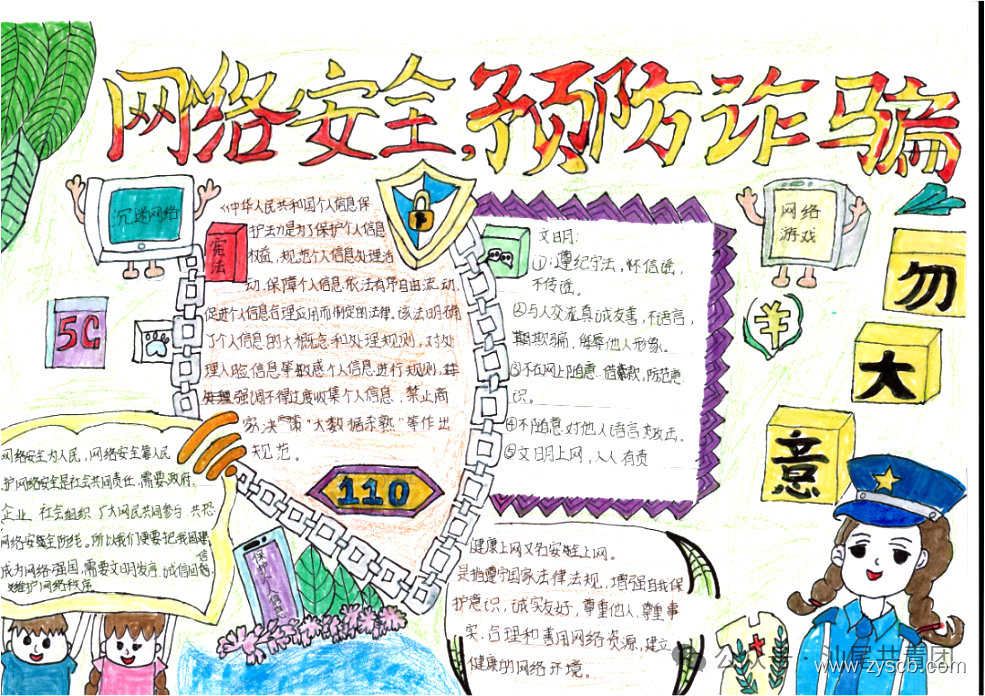 网络安全,预防诈骗
沉迷网络
宪法
5G
《中华人民共和国个人信息保
护法》是为了保护个人信息
权益，规范个人信息处理活
动，保障个人信息依法有序自由流动，
促进个人信息合理应用而制定的法律。该法明确
了个人信息的大概念和处理规则，对处
理人脸信息等敏感个人信息进行规则，
强调不得过度收集个人信息，禁止商
家决策"大数据杀熟"等作出
规范。
110
文明：
①：遵纪守法，不信谣，
不传谣。
②与人交流真诚友善，不语言，
期欺骗，侮辱他人形象。
③不在网上随意 借款，防范意
识。
④不随意对他人语言攻击，
⑤文明上网，人人有责
网络
游戏
勿
大
意
网络安全为人民，网络安全靠人民
护网络安全是社会共同责任，需要政府，
企业、社会组织、广大网民共同参与，共
网络安全防线。所以我们更要把我国建
成为网络强国，需要文明发言，诚信
维护网络秩序
保护个人信息
健康上网又名安全上网。
是指遵守国家法律法规，增强自我保
护意识，诚实友好，尊重他人，尊重事
实，合理和善用网络资源，建立
健康的网络环境。
公众号·汕尾共青团
www.zyscb.com